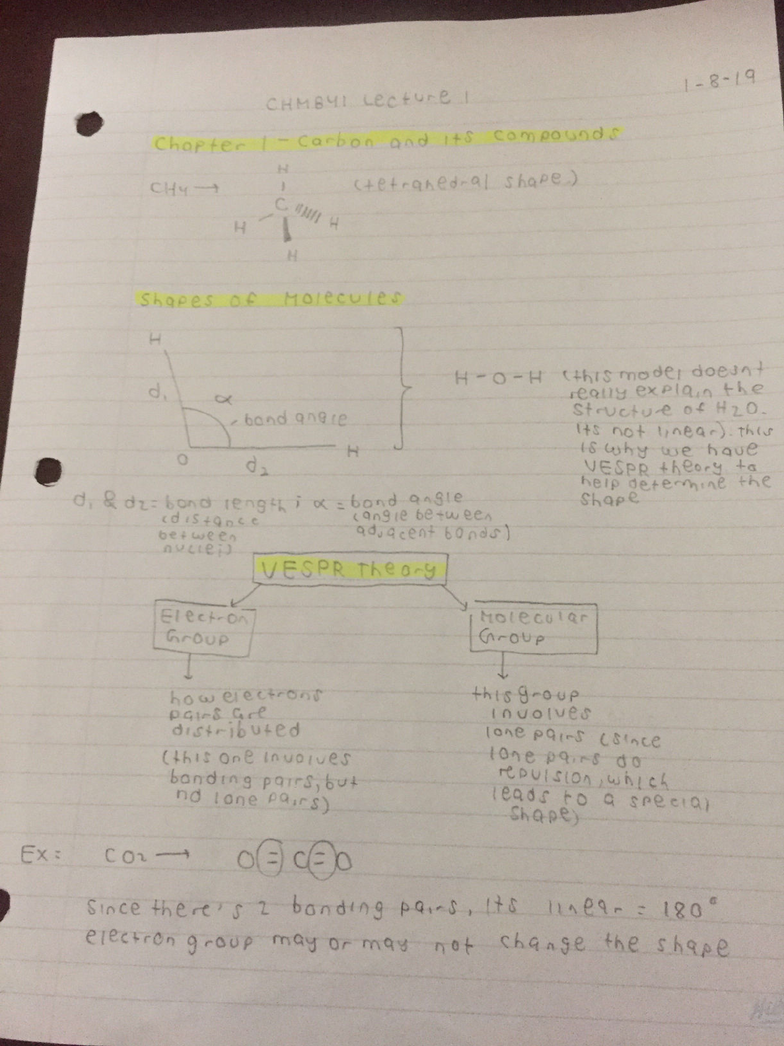 1-8-19
CHMB41 Lecture 1
Chapter 1 - Carbon and its compounds
CH4 → (tetrahedral shape)
H
C
H H
H
Shapes of Molecules
H
d1 α
bond angle
O d2 H
H-O-H (this model doesnt
really explain the
structure of H2O.
Its not linear). This
is why we have
VESPR theory to
help determine the
shape
d1 & d2 = bond length ; α = bond angle
(distance (angle between
between adjacent bonds)
nuclei)
VESPR Theory
Electron
Group
Molecular
Group
how electrons
pairs are
distributed
(this one involves
bonding pairs, but
no lone pairs)
this group
involves
lone pairs (since
lone pairs do
repulsion, which
leads to a special
shape)
Ex: CO2 → O=C=O
Since there's 2 bonding pairs, its linear = 180°
electron group may or may not change the shape